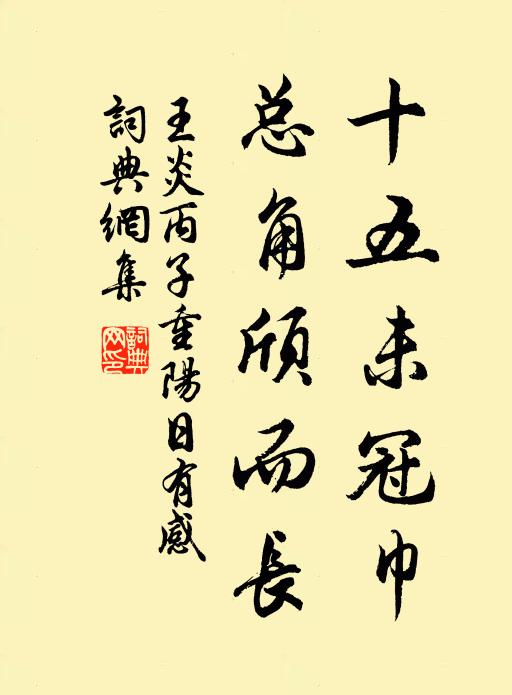 十五未冠巾
总角颀而長
王炎丙子重陽日有感
詞典網集
詞典網印